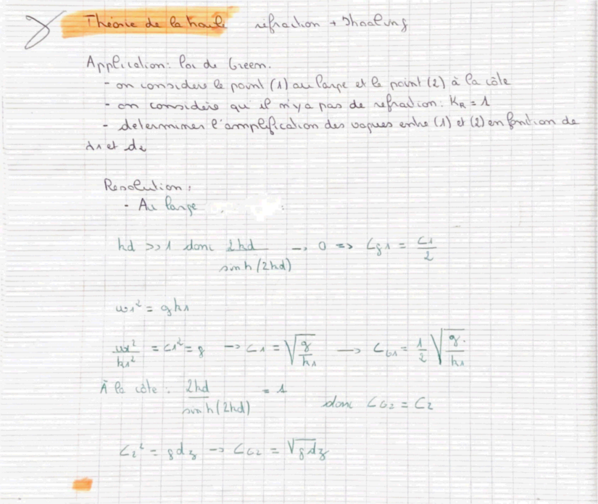 Théorie de la houle refraction + Shoaling
Application: Loi de Green.
- on considère le point (1) au large et le point (2) à la côte
- on considère qu'il n'y a pas de refraction: KR = 1
- determiner l'amplification des vagues entre (1) et (2) en fontion de
d1 et d2
Resolution:
- Au large
kd >> 1 donc 2kd / sinh(2kd) → 0 => Cg1 = C1/2
ω1² = gk1
ω1²/k1² = C1² = g → C1 = √(g/k1) → CG1 = 1/2 √(g/k1)
À la côte: 2kd / sinh(2kd) = 1 donc CG2 = C2
C2² = gd2 → CG2 = √gd2